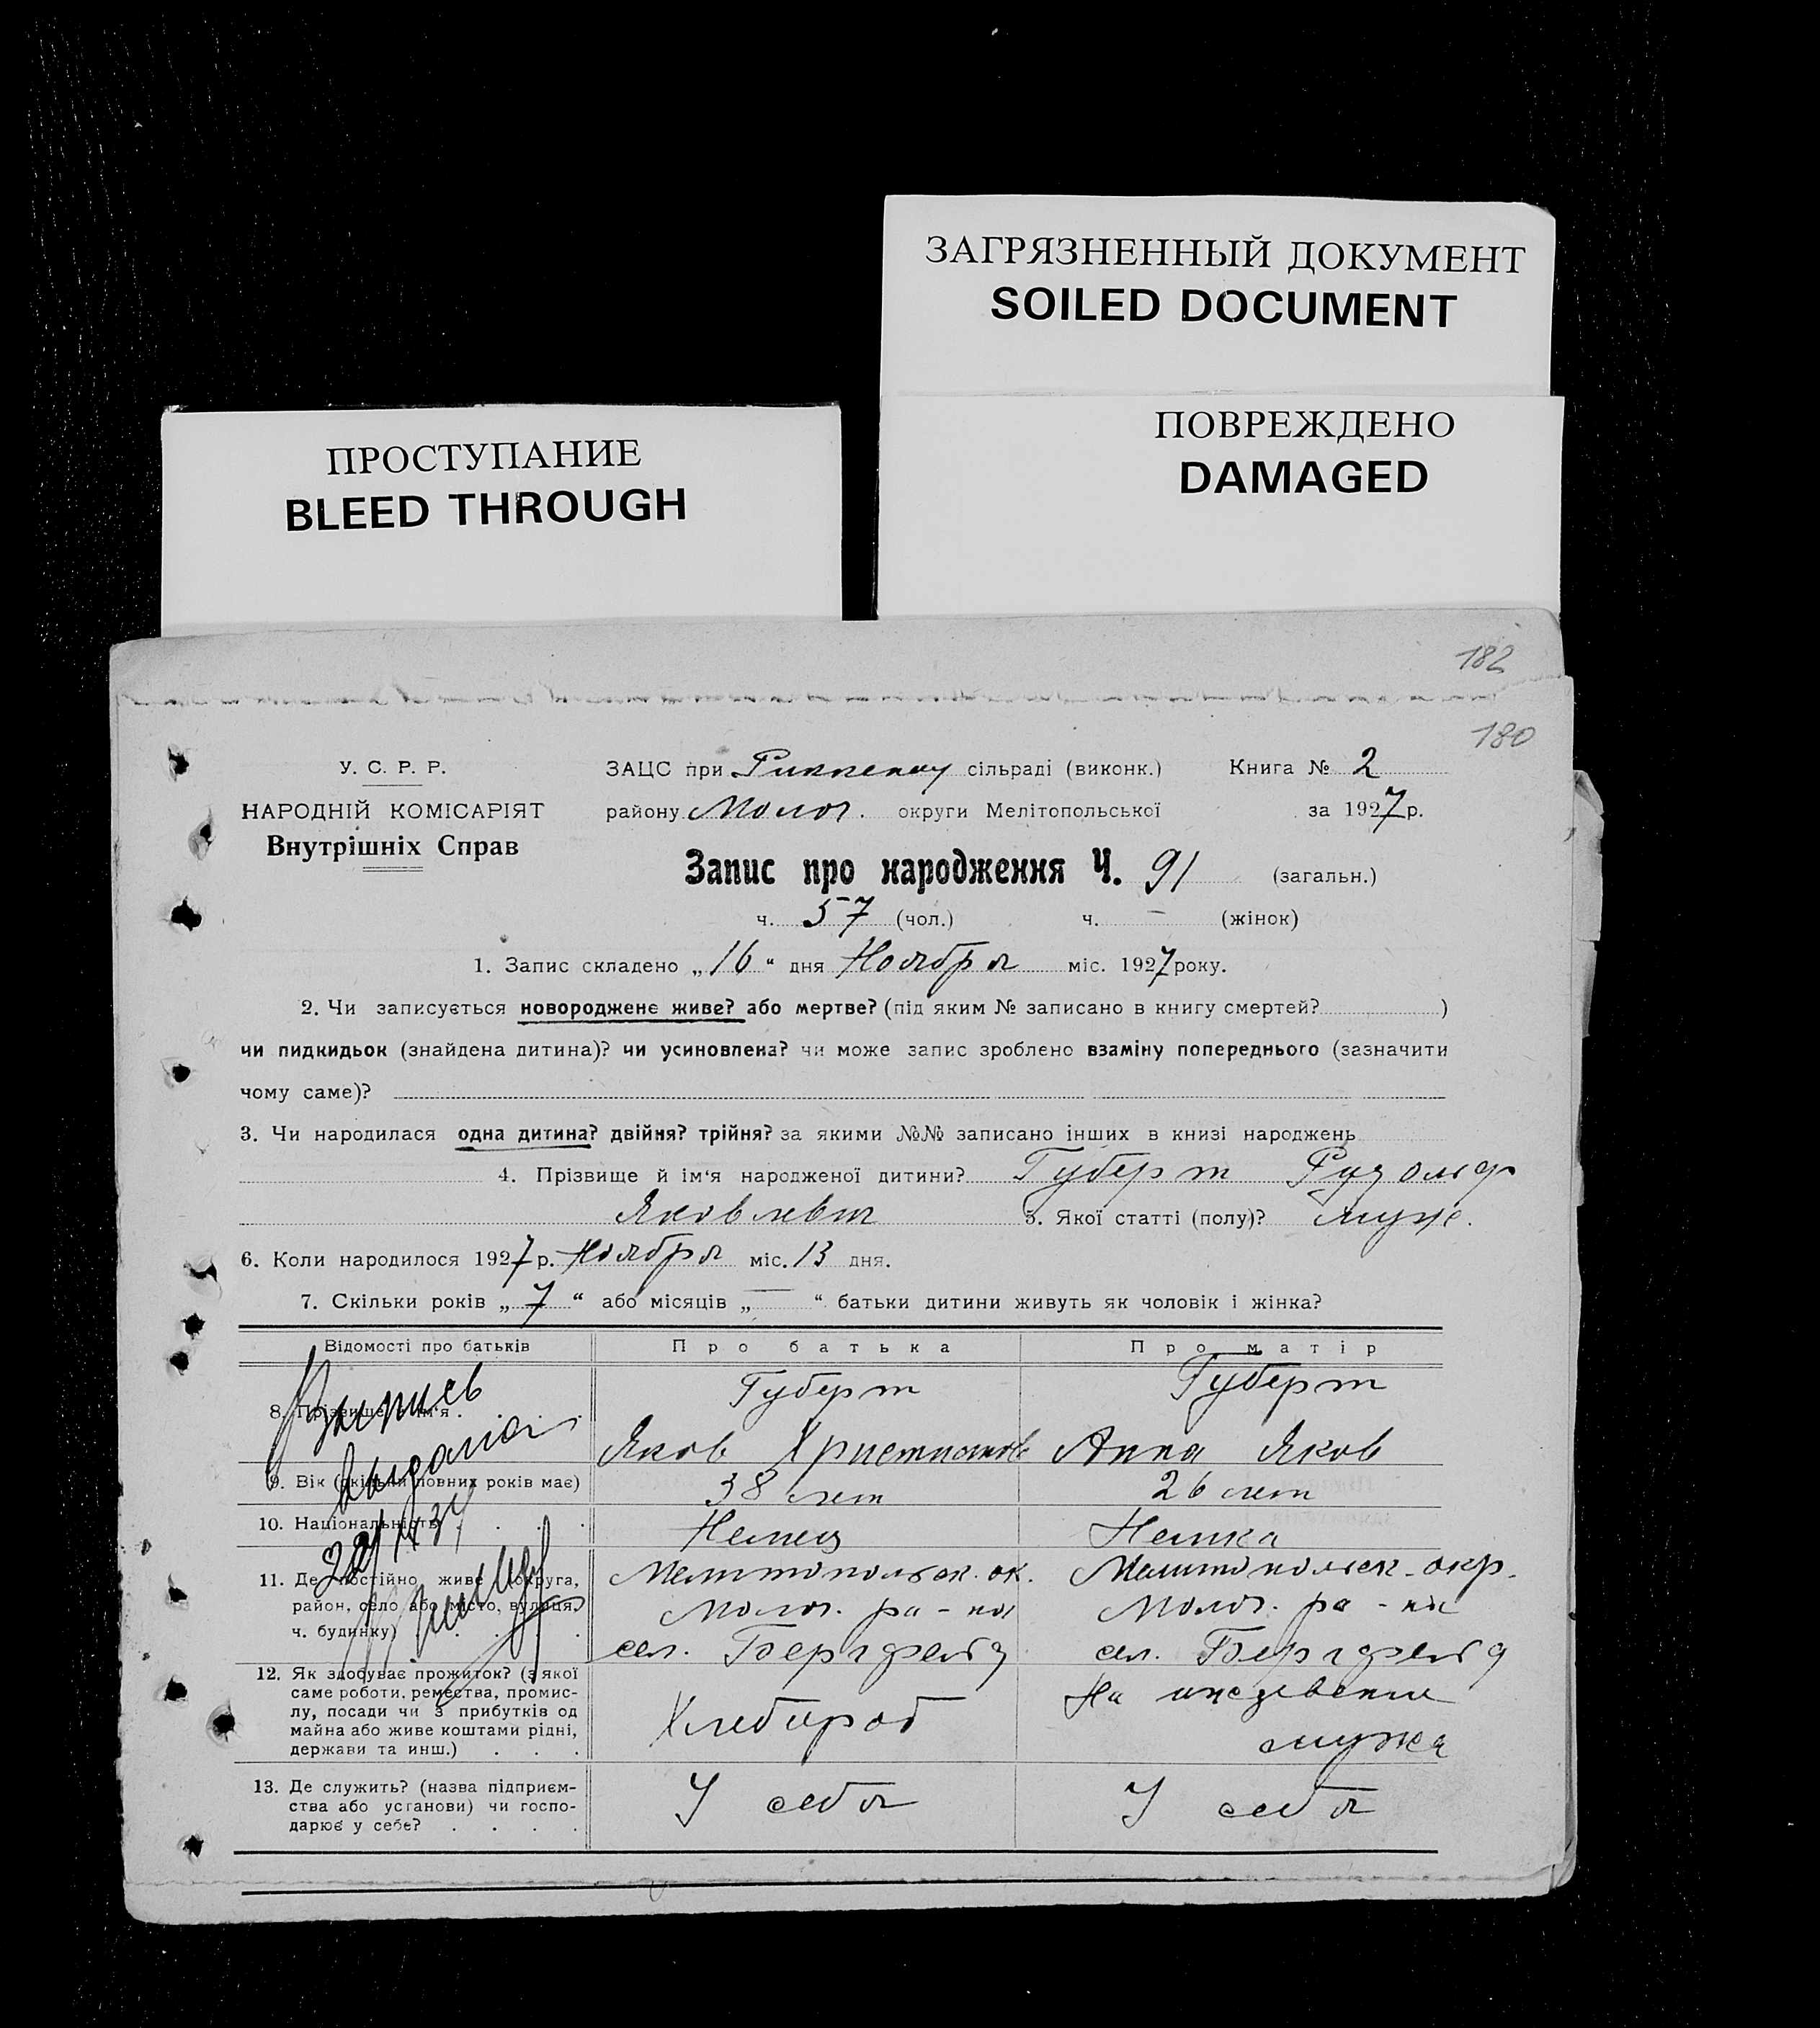 ЗАГРЯЗНЕННЫЙ ДОКУМЕНТ
SOILED DOCUMENT
ПОВРЕЖДЕНО
DAMAGED
ПРОСТУПАНИЕ
BLEED THROUGH
182
180
У. С. Р. Р.
НАРОДНІЙ КОМІСАРІЯТ
Внутрішніх Справ
ЗАЦС при сільраді (виконк.)
району Молоч. округи Мелітопольської
Книга № 2
за 1927 р.
Запис про народження Ч. 91 (загальн.)
ч. 57 (чол.) ч. — (жінок)
1. Запис складено „16" дня Ноября міс. 1927 року.
2. Чи записується новороджене живе? або мертве? (під яким № записано в книгу смертей? )
чи пидкидьок (знайдена дитина)? чи усиновлена? чи може запис зроблено взаміну попереднього (зазначити
чому саме)?
3. Чи народилася одна дитина? двійня? трійня? за якими №№ записано інших в книзі народжень
4. Прізвище й ім'я народженої дитини? Губерт Рудольф
Яковлевич 5. Якої статті (полу)? муж.
6. Коли народилося 1927 р. Ноября міс. 13 дня.
7. Скільки років „7" або місяців „—" батьки дитини живуть як чоловік і жінка?
Відомості про батьків Про батька Про матір
8. Прізвище й ім'я . . . .
Губерт
Яков Христианов
Губерт
Анна Яков
9. Вік (скільки повних років має) 38 лет 26 лет
10. Національність . . . . Немец Немка
11. Де постійно живе (округа,
район, село або місто, вулиця,
ч. будинку) . . . .
Мелитопольск. ок.
Молоч. ра-на
сел. Бергфельд
Мелитопольск. окр.
Молоч. ра-на
сел. Бергфельд
12. Як здобуває прожиток? (з якої
саме роботи, ремества, промис-
лу, посади чи з прибутків од
майна або живе коштами рідні,
держави та инш.) . . .
Хлебороб
На иждевении
мужа
13. Де служить? (назва підприєм-
ства або установи) чи госпо-
дарює у себе? . . . .
У себя
У себя